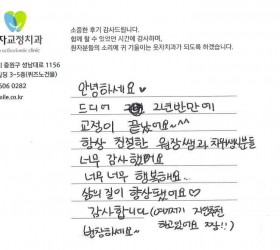 자교정치과
e orthodontic clinic
소중한 후기 감사드립니다.
함께 할 수 있었던 시간에 감사하며,
환자분들의 소리에 귀 기울이는 웃자치과가 되도록 하겠습니다.
시 중원구 성남대로 1156
딩 3~5층(퀴즈노건물)
606 0282
ile.co.kr
안녕하세요♥
드디어 2년반만에
교정이 끝났어요~^^
항상 친절한 원장쌤과 치위생쌤분들
너무 감사했어요
너무 너무 행복해요~
삶의 질이 향상됐어요♡
감사합니다(여기저기 지인추천
번창하세요~ 하고있어요 짱!!)